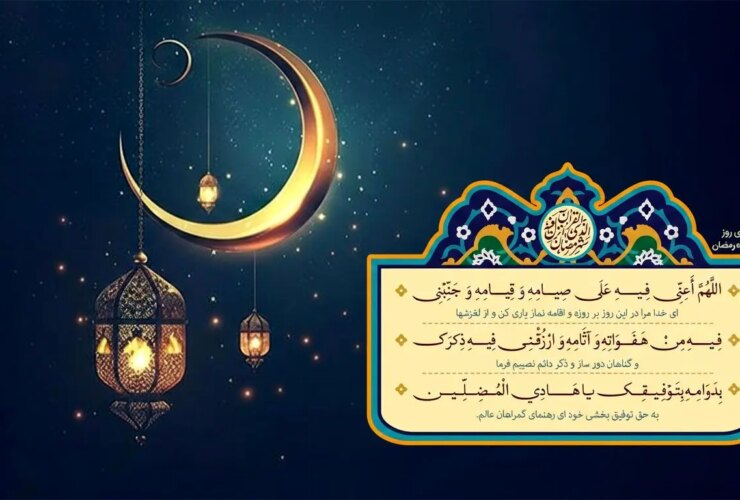 شهر رمضان الذی انزل فیه القرآن
ی روز
رمضان
اللَّهُمَّ أَعِنِّي فِیهِ عَلَى صِیَامِهِ وَ قِیَامِهِ وَ جَنِّبْنِي
ای خدا مرا در این روز بر روزه و اقامه نماز یاری کن و از لغزشها
فِیهِ مِنْ هَفَوَاتِهِ وَ آثَامِهِ وَ ارْزُقْنِي فِیهِ ذِکْرَکَ
و گناهان دور ساز و ذکر دائم نصیبم فرما
بِدَوَامِهِ بِتَوْفِیقِکَ یَا هَادِيَ الْمُضِلِّینَ
به حق توفیق بخشی خود ای رهنمای گمراهان عالم.